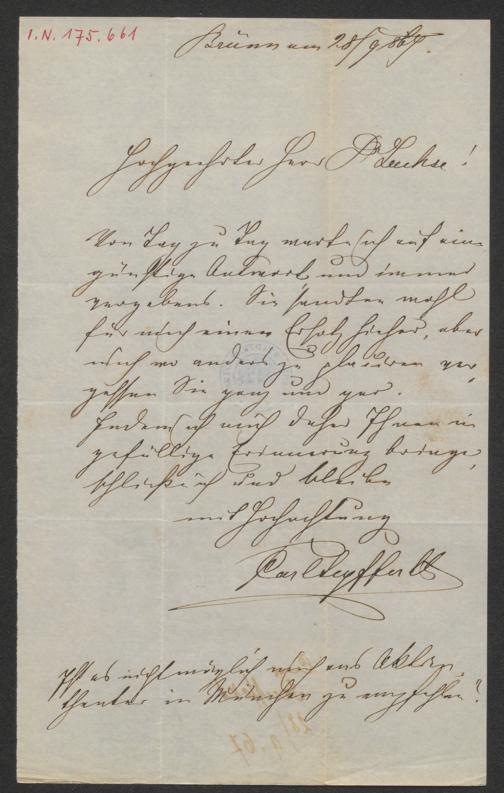 I.N. 175.661
Brünn am 28/9 867.
Hochgeehrter Herr Dr Leuchse!
Von Tag zu Tag warte ich auf eine
günstige Antwort und immer
vergebens. Sie sandten wohl
für mich einen Ersatz hieher, aber
mich wo anders zu placiren ver
gessen Sie ganz und gar.
Indem ich mich daher Ihnen in
gefällige Erinnerung bringe,
schließe ich und bleibe
mit Hochachtung
Carl
Ist es nicht möglich mich ans Aktien
theater in München zu empfehlen?